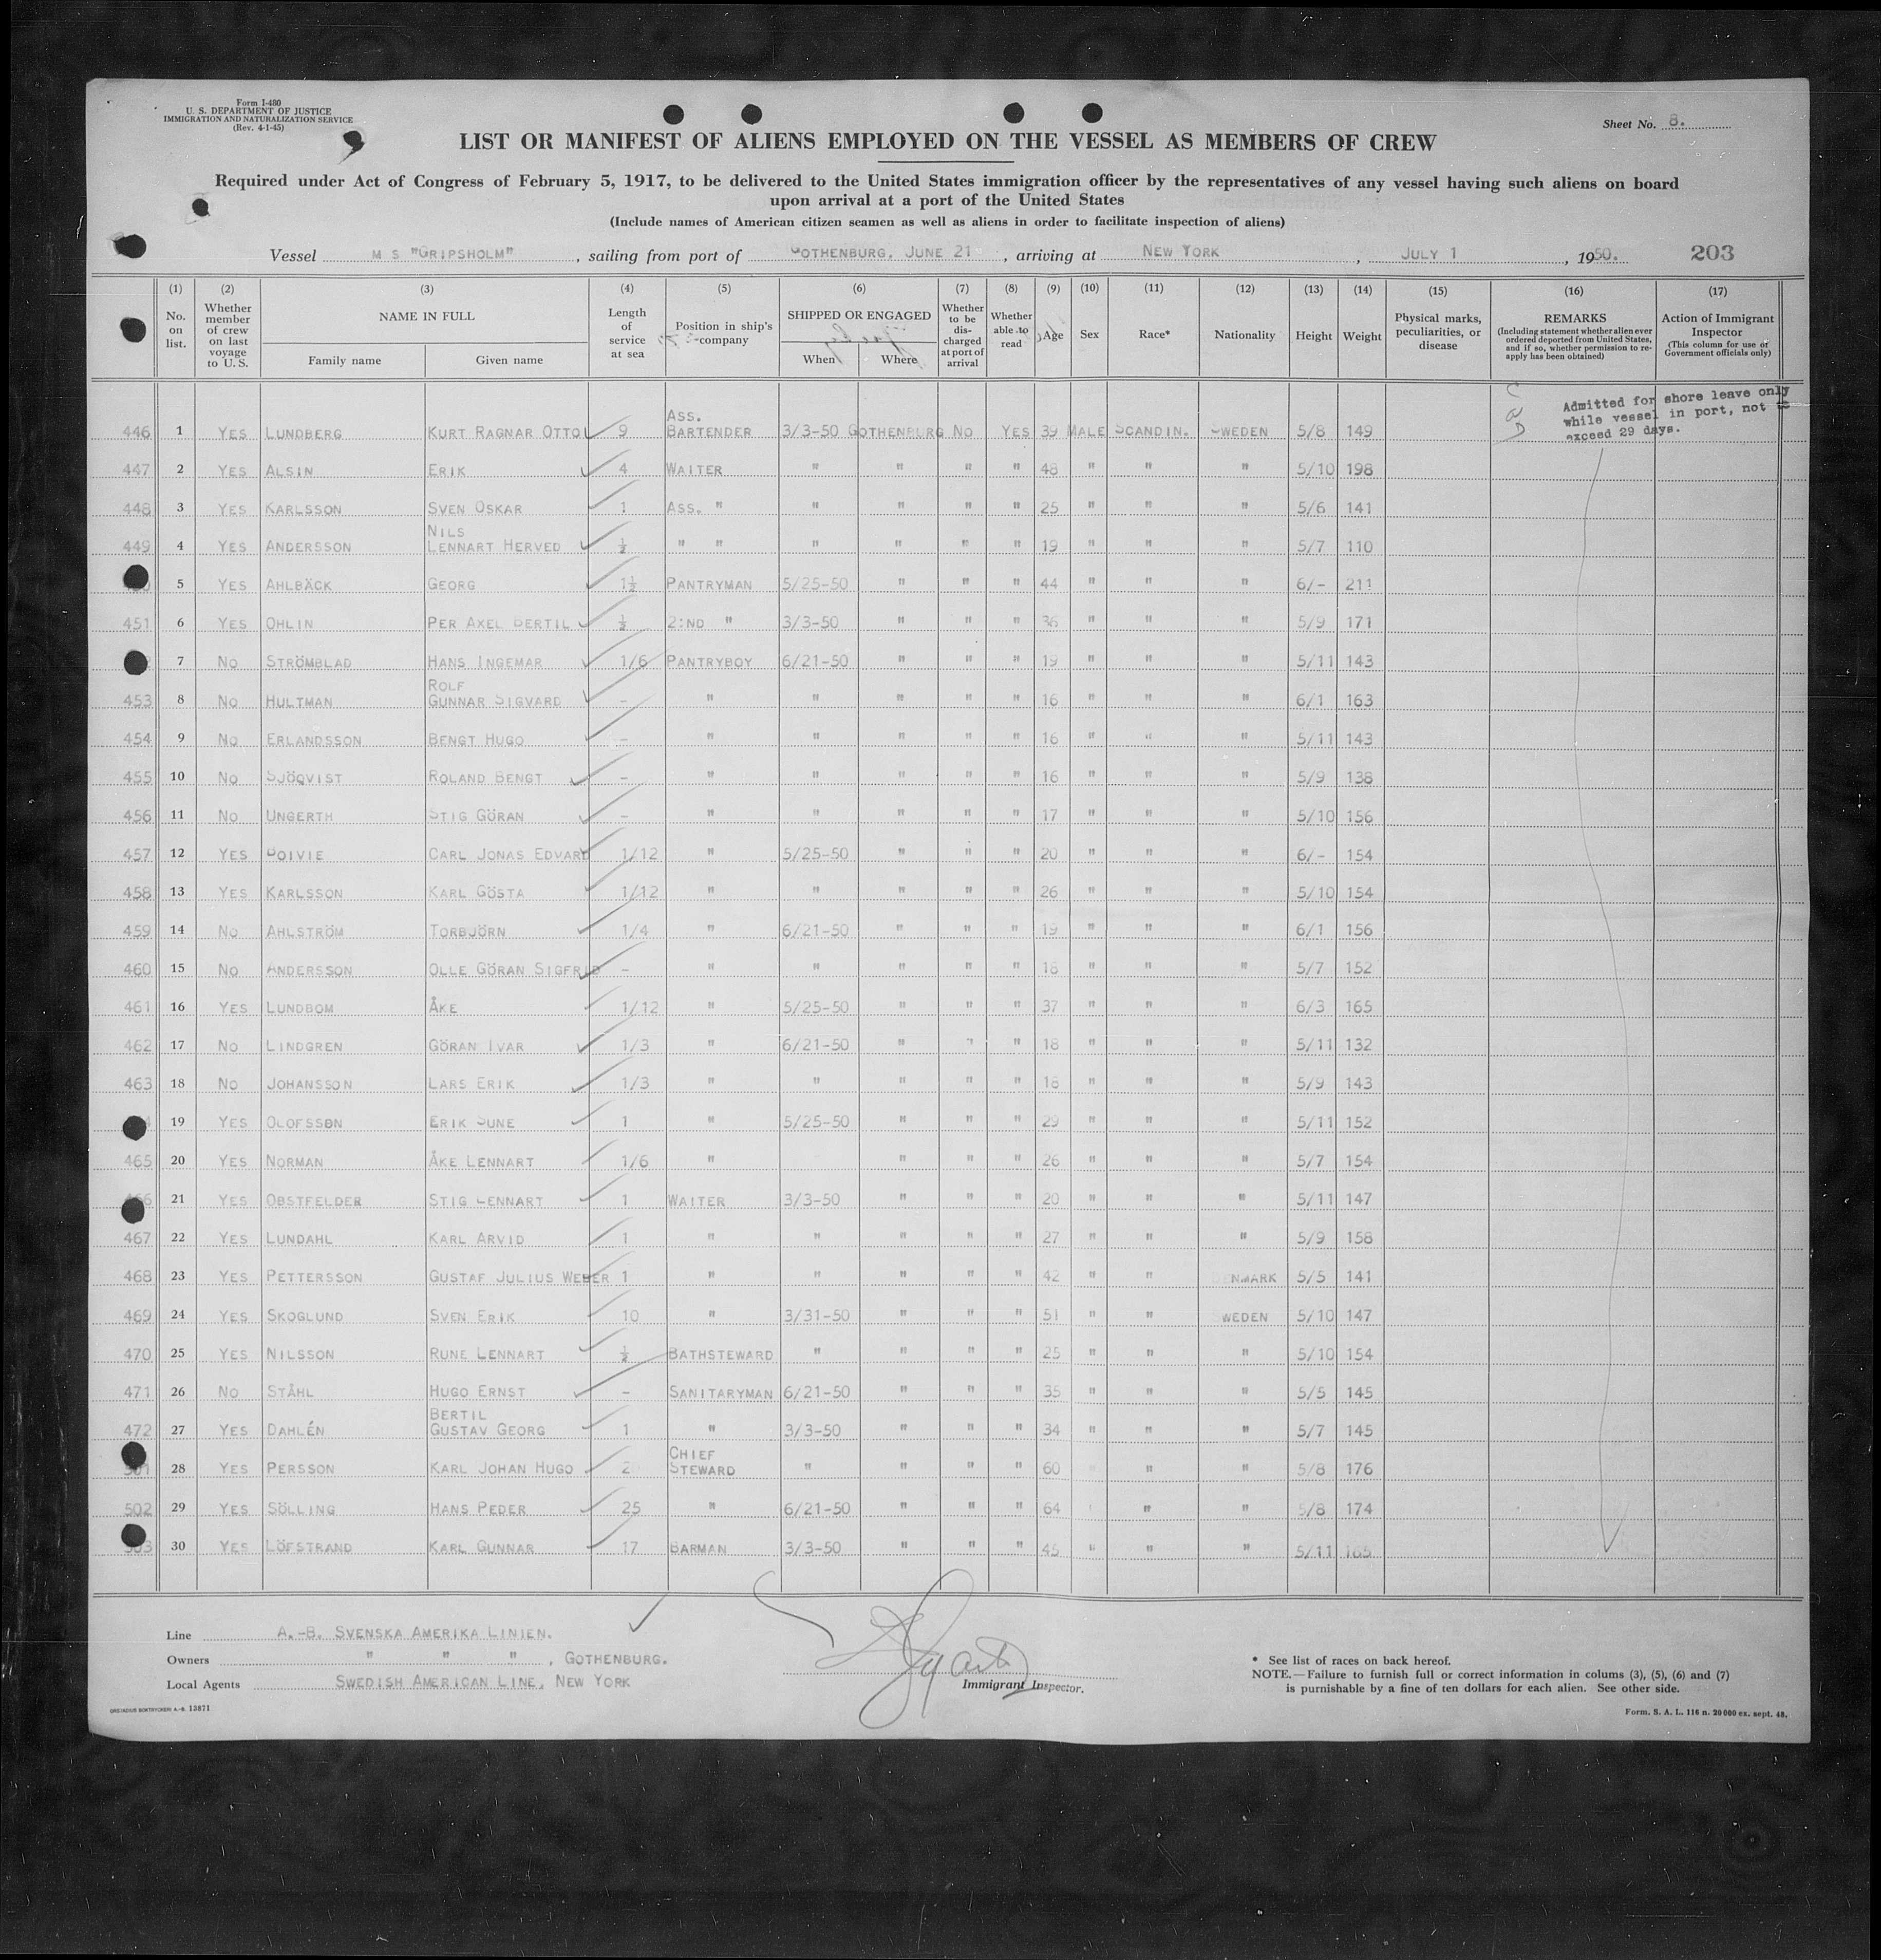 Form I-480
U. S. DEPARTMENT OF JUSTICE
IMMIGRATION AND NATURALIZATION SERVICE
(Rev. 4-1-45)
Sheet No. 8.
LIST OR MANIFEST OF ALIENS EMPLOYED ON THE VESSEL AS MEMBERS OF CREW
Required under Act of Congress of February 5, 1917, to be delivered to the United States immigration officer by the representatives of any vessel having such aliens on board
upon arrival at a port of the United States
(Include names of American citizen seamen as well as aliens in order to facilitate inspection of aliens)
Vessel M S "GRIPSHOLM", sailing from port of GOTHENBURG, JUNE 21, arriving at NEW YORK, JULY 1, 1950. 203
(1) No. on list.
(2) Whether member of crew on last voyage to U. S.
(3) NAME IN FULL Family name Given name
(4) Length of service at sea
(5) Position in ship's company
(6) SHIPPED OR ENGAGED When Where
(7) Whether to be discharged at port of arrival
(8) Whether able to read
(9) Age
(10) Sex
(11) Race*
(12) Nationality
(13) Height
(14) Weight
(15) Physical marks, peculiarities, or disease
(16) REMARKS (Including statement whether alien ever ordered deported from United States, and if so, whether permission to re-apply has been obtained)
(17) Action of Immigrant Inspector (This column for use of Government officials only)
Admitted for shore leave only
while vessel in port, not to
exceed 29 days.
446 1 YES LUNDBERG KURT RAGNAR OTTO 9 ASS. BARTENDER 3/3-50 GOTHENBURG NO YES 39 MALE SCANDIN. SWEDEN 5/8 149
447 2 YES ALSIN ERIK 4 WAITER " " " " 48 " " " 5/10 198
448 3 YES KARLSSON SVEN OSKAR 1 ASS. " " " " " 25 " " " 5/6 141
449 4 YES ANDERSSON NILS LENNART HERVED ½ " " " " " " 19 " " " 5/7 110
5 YES AHLBÄCK GEORG 1½ PANTRYMAN 5/25-50 " " " 44 " " " 6/- 211
451 6 YES OHLIN PER AXEL BERTIL ½ 2:ND " 3/3-50 " " " 36 " " " 5/9 171
7 NO STRÖMBLAD HANS INGEMAR 1/6 PANTRYBOY 6/21-50 " " " 19 " " " 5/11 143
453 8 NO HULTMAN ROLF GUNNAR SIGVARD - " " " " " 16 " " " 6/1 163
454 9 NO ERLANDSSON BENGT HUGO - " " " " " 16 " " " 5/11 143
455 10 NO SJÖQVIST ROLAND BENGT - " " " " " 16 " " " 5/9 138
456 11 NO UNGERTH STIG GÖRAN - " " " " " 17 " " " 5/10 156
457 12 YES POIVIE CARL JONAS EDVARD 1/12 " 5/25-50 " " " 20 " " " 6/- 154
458 13 YES KARLSSON KARL GÖSTA 1/12 " " " " " 26 " " " 5/10 154
459 14 NO AHLSTRÖM TORBJÖRN 1/4 " 6/21-50 " " " 19 " " " 6/1 156
460 15 NO ANDERSSON OLLE GÖRAN SIGFRID - " " " " " 18 " " " 5/7 152
461 16 YES LUNDBOM ÅKE 1/12 " 5/25-50 " " " 37 " " " 6/3 165
462 17 NO LINDGREN GÖRAN IVAR 1/3 " 6/21-50 " " " 18 " " " 5/11 132
463 18 NO JOHANSSON LARS ERIK 1/3 " " " " " 18 " " " 5/9 143
19 YES OLOFSSON ERIK SUNE 1 " 5/25-50 " " " 29 " " " 5/11 152
465 20 YES NORMAN ÅKE LENNART 1/6 " " " " 26 " " " 5/7 154
21 YES OBSTFELDER STIG LENNART 1 WAITER 3/3-50 " " " 20 " " " 5/11 147
467 22 YES LUNDAHL KARL ARVID 1 " " " " " 27 " " " 5/9 158
468 23 YES PETTERSSON GUSTAF JULIUS WEBER 1 " " " " " 42 " " DENMARK 5/5 141
469 24 YES SKOGLUND SVEN ERIK 10 " 3/31-50 " " " 51 " " SWEDEN 5/10 147
470 25 YES NILSSON RUNE LENNART ½ BATHSTEWARD " " " " 25 " " " 5/10 154
471 26 NO STÅHL HUGO ERNST - SANITARYMAN 6/21-50 " " " 35 " " " 5/5 145
472 27 YES DAHLÉN BERTIL GUSTAV GEORG 1 " 3/3-50 " " " 34 " " " 5/7 145
28 YES PERSSON KARL JOHAN HUGO 2 CHIEF STEWARD " " " " 60 " " 5/8 176
502 29 YES SÖLLING HANS PEDER 25 " 6/21-50 " " " 64 " " 5/8 174
30 YES LÖFSTRAND KARL GUNNAR 17 BARMAN 3/3-50 " " " 45 " " " 5/11 165
Line A.-B. SVENSKA AMERIKA LINIEN.
Owners " " ", GOTHENBURG.
Local Agents SWEDISH AMERICAN LINE, NEW YORK
Immigrant Inspector.
* See list of races on back hereof.
NOTE.—Failure to furnish full or correct information in colums (3), (5), (6) and (7)
is purnishable by a fine of ten dollars for each alien. See other side.
Form. S. A. L. 116 n. 20 000 ex. sept. 48.